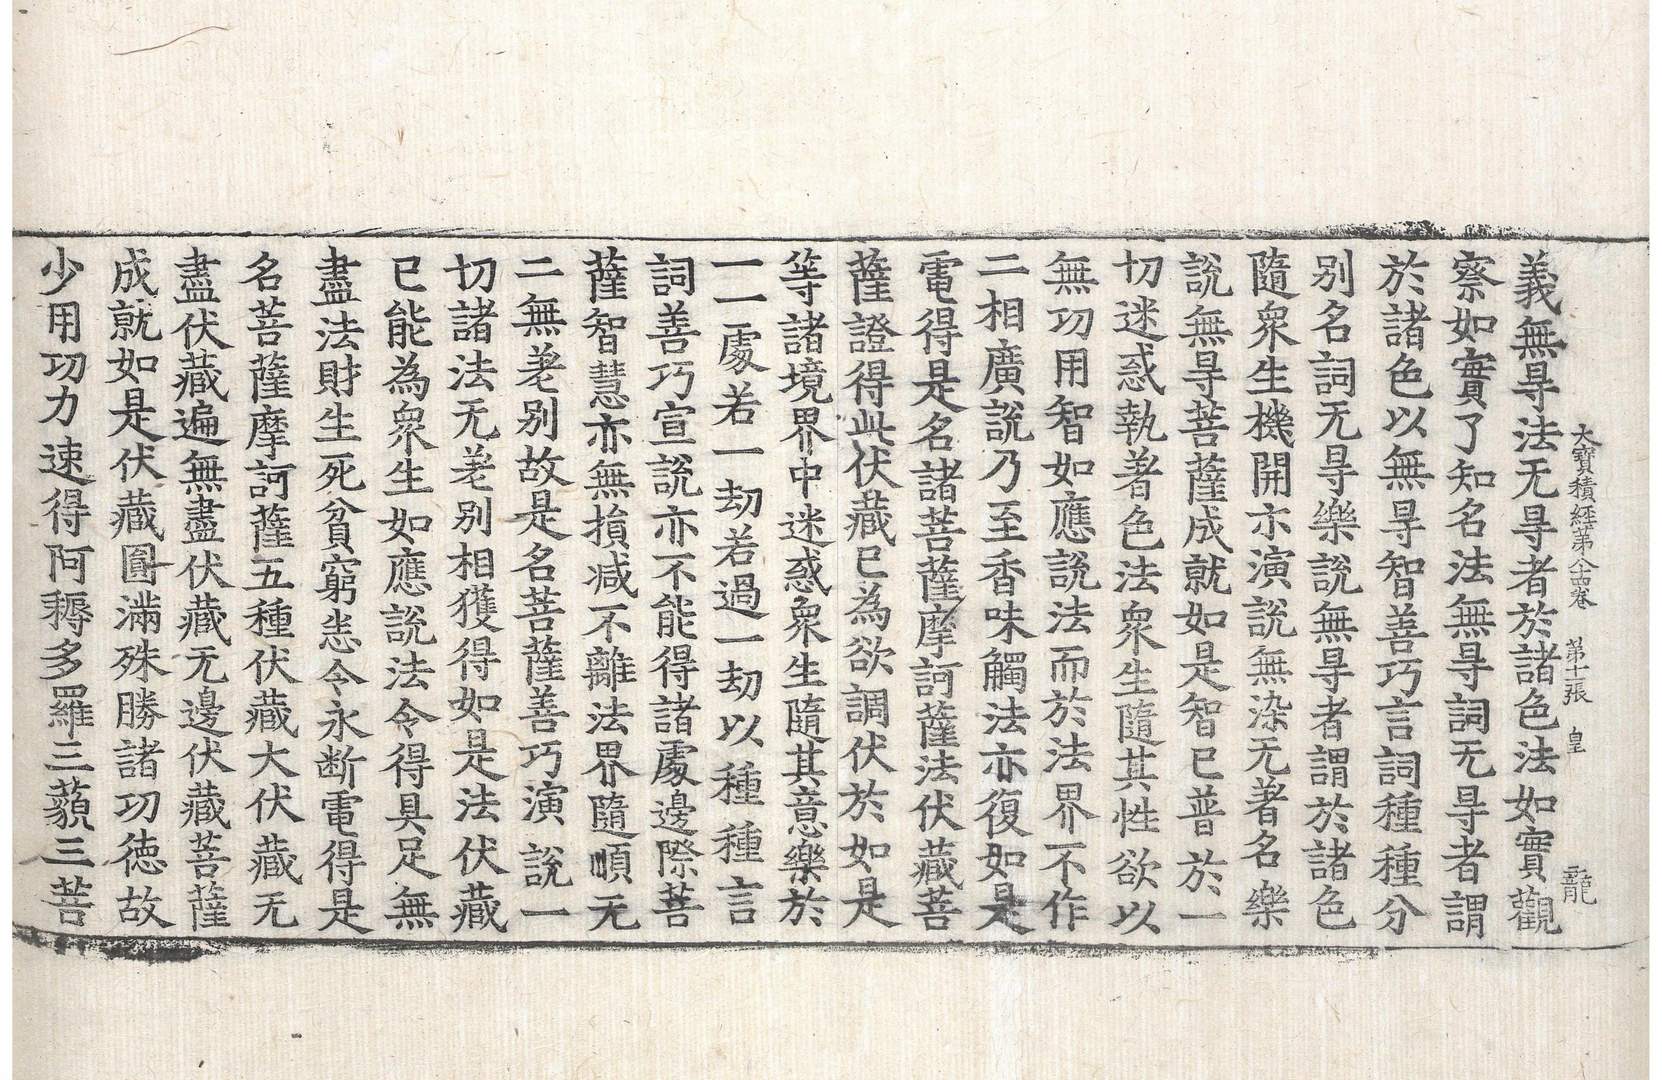 大寶積經第八十四卷 第十一張 皇 龍
義無㝵法无㝵者於諸色法如實觀
察如實了知名法無㝵詞无㝵者謂
於諸色以無㝵智善巧言詞種種分
别名詞无㝵樂說無㝵者謂於諸色
隨衆生機開亦演說無染无著名樂
說無㝵菩薩成就如是智已普於一
切迷惑執著色法衆生隨其性欲以
無功用智如應說法而於法界不作
二相廣說乃至香味觸法亦復如是
電得是名諸菩薩摩訶薩法伏藏菩
薩證得此伏藏已為欲調伏於如是
等諸境界中迷惑衆生隨其意樂於
一一處若一劫若過一劫以種種言
詞善巧宣說亦不能得諸處邊際菩
薩智慧亦無損减不離法界隨順无
二無差别故是名菩薩善巧演說一
切諸法无差别相獲得如是法伏藏
已能為衆生如應說法令得具足無
盡法財生死貧窮悉令永断電得是
名菩薩摩訶薩五種伏藏大伏藏无
盡伏藏遍無盡伏藏无邊伏藏菩薩
成就如是伏藏圓滿殊勝諸功德故
少用功力速得阿耨多羅三藐三菩